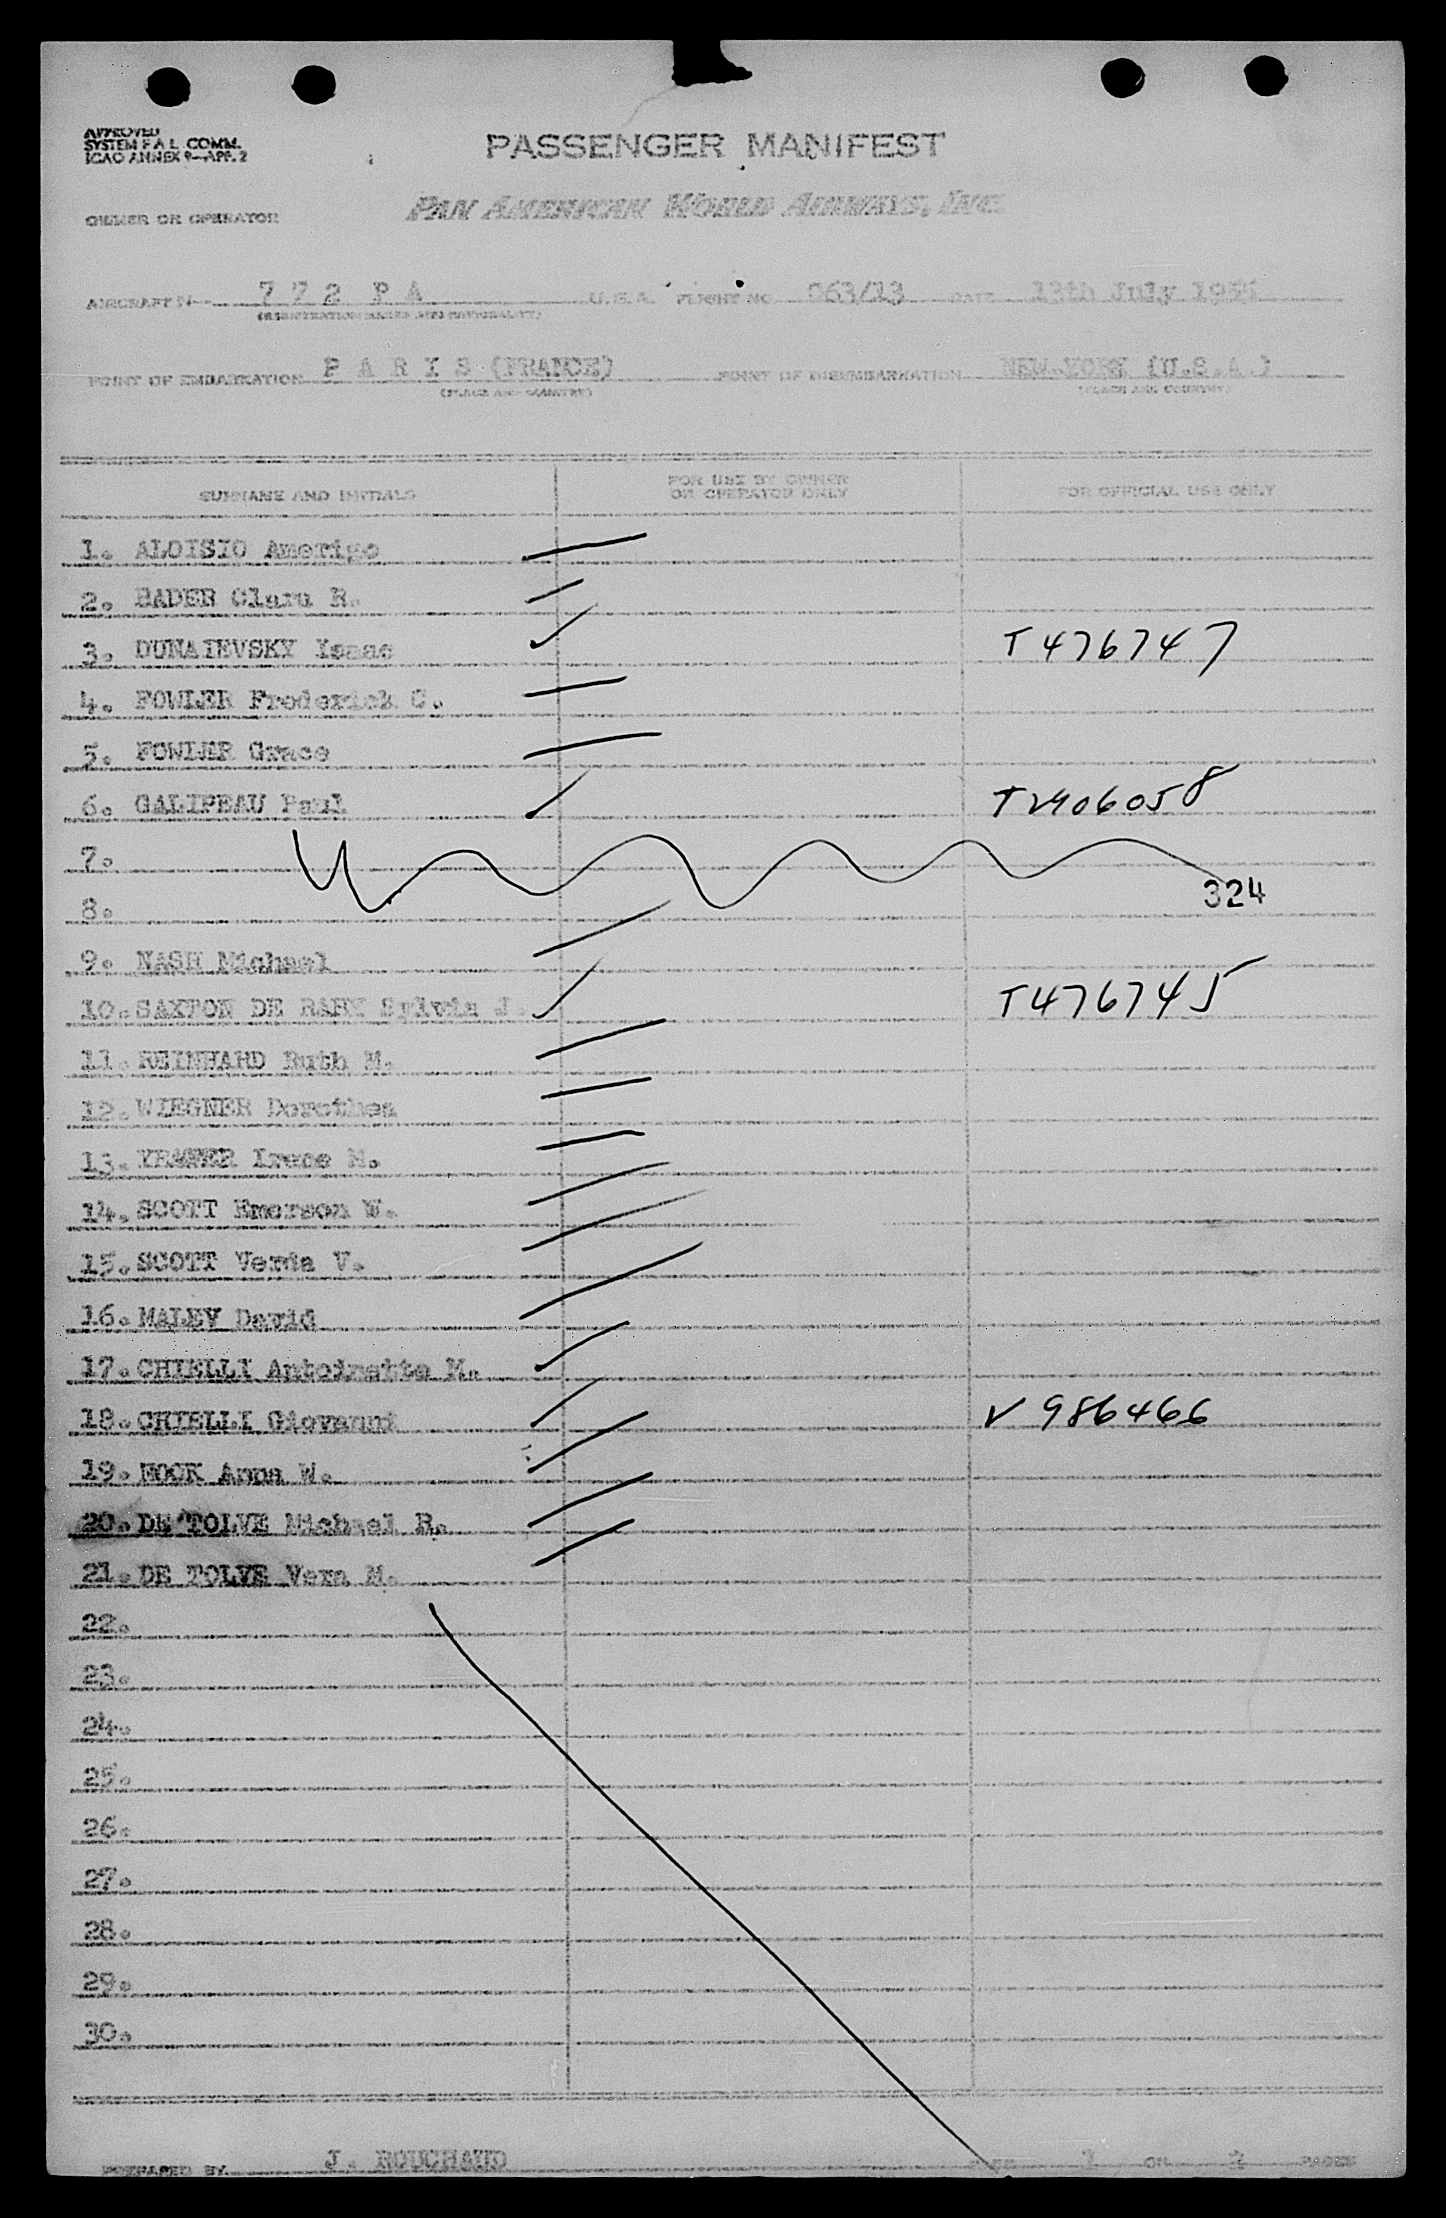 APPROVED
SYSTEM F A L. COMM.
ICAO ANNEX 9—APP. 2
PASSENGER MANIFEST
OWNER OR OPERATOR
PAN AMERICAN WORLD AIRWAYS, INC.
AIRCRAFT N 7 7 2 P A U.S.A. FLIGHT NO 063/13 DATE 13th July 1955
(REGISTRATION MARKS AND NATIONALITY)
POINT OF EMBARKATION P A R I S (FRANCE) POINT OF DISEMBARKATION NEW YORK (U.S.A.)
(PLACE AND COUNTRY) (PLACE AND COUNTRY)
SURNAME AND INITIALS FOR USE BY OWNER OR OPERATOR ONLY FOR OFFICIAL USE ONLY
1. ALOISIO Amerigo
2. BADER Clara R.
3. DUNAIEVSKY Isaac T476747
4. FOWLER Frederick C.
5. FOWLER Grace
6. GALIPEAU Paul
7.
8. 324
9. NASH Michael
10. SAXTON DE Sylvia J. T476745
11. REINHARD Ruth M.
12. WIEGNER Dorothea
13. Irene M.
14. SCOTT Emerson W.
15. SCOTT Verda V.
16. MALEV David
17. CHIELLI Antoinette M.
18. CHIELLI Giovanni V 986466
19. HOOK Anna W.
20. DE TOLVE Michael R.
21. DE TOLVE Vera M.
22.
23.
24.
25.
26.
27.
28.
29.
30.
PREPARED BY J. ROUCHAUD PAGE 1 OF PAGES